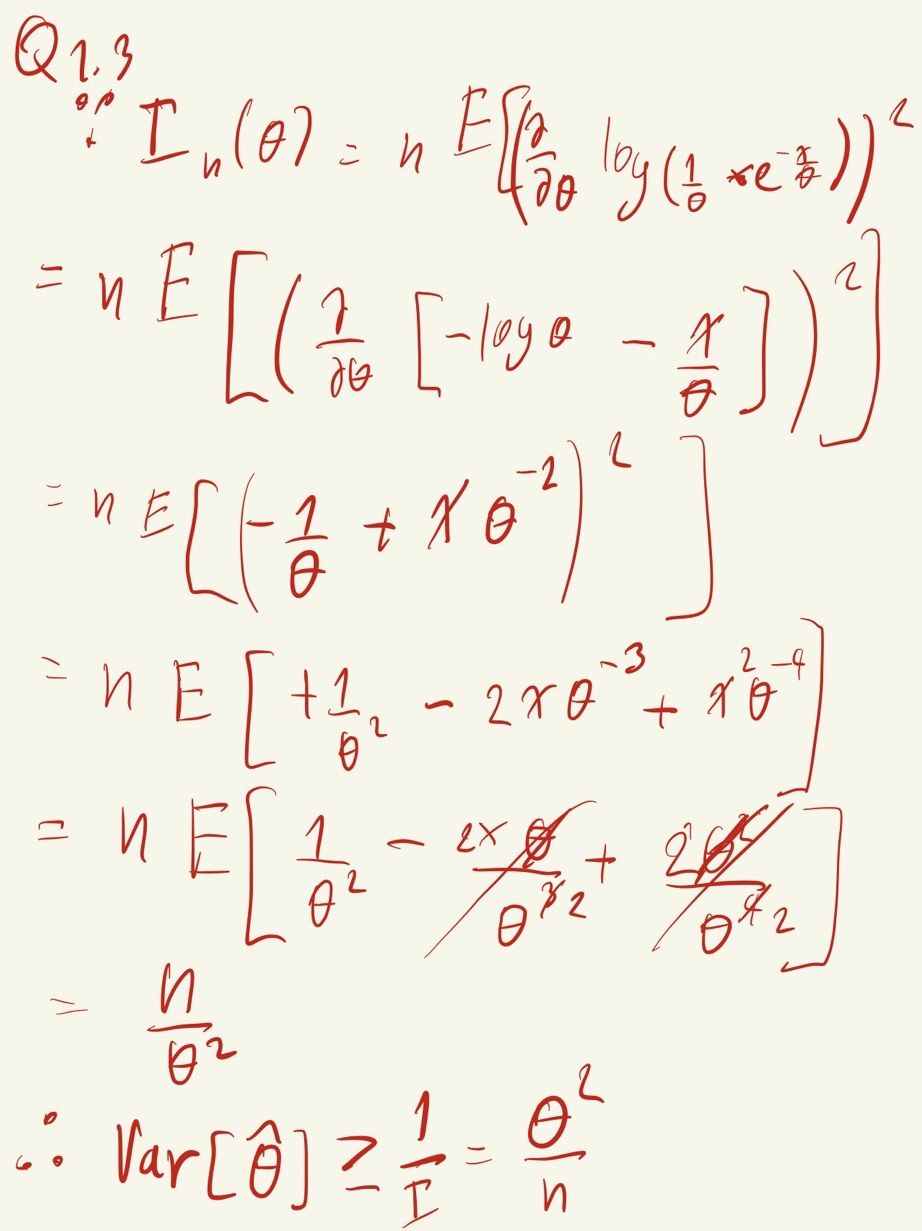 Q 1.3
∵ I_n(θ) = n E[(∂/∂θ log(1/θ × e^{-x/θ}))^2
= n E[(∂/∂θ [-log θ - x/θ])^2]
= n E[(-1/θ + x θ^{-2})^2]
= n E[+1/θ^2 - 2xθ^{-3} + x^2θ^{-4}]
= n E[1/θ^2 - 2×θ/θ^{3 2} + 2θ^2/θ^{4 2}]
= n/θ^2
∴ Var[θ̂] ≥ 1/I = θ^2/n